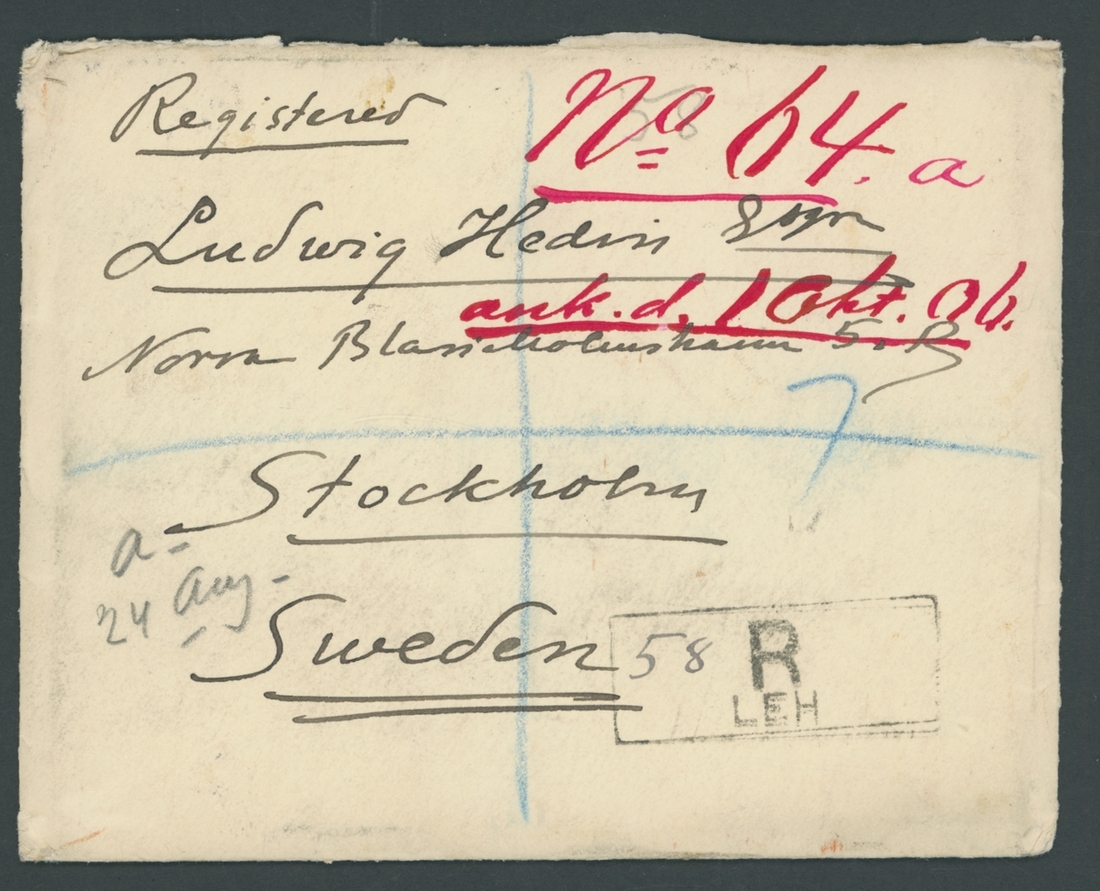 Registered
58
No 64. a
Ludwig Hedin Esqr
ank. d. 1 Okt. 06.
Norra Blasieholmshamn 5. B
7
Stockholm
a-
24 Aug-
Sweden
58 R
LEH